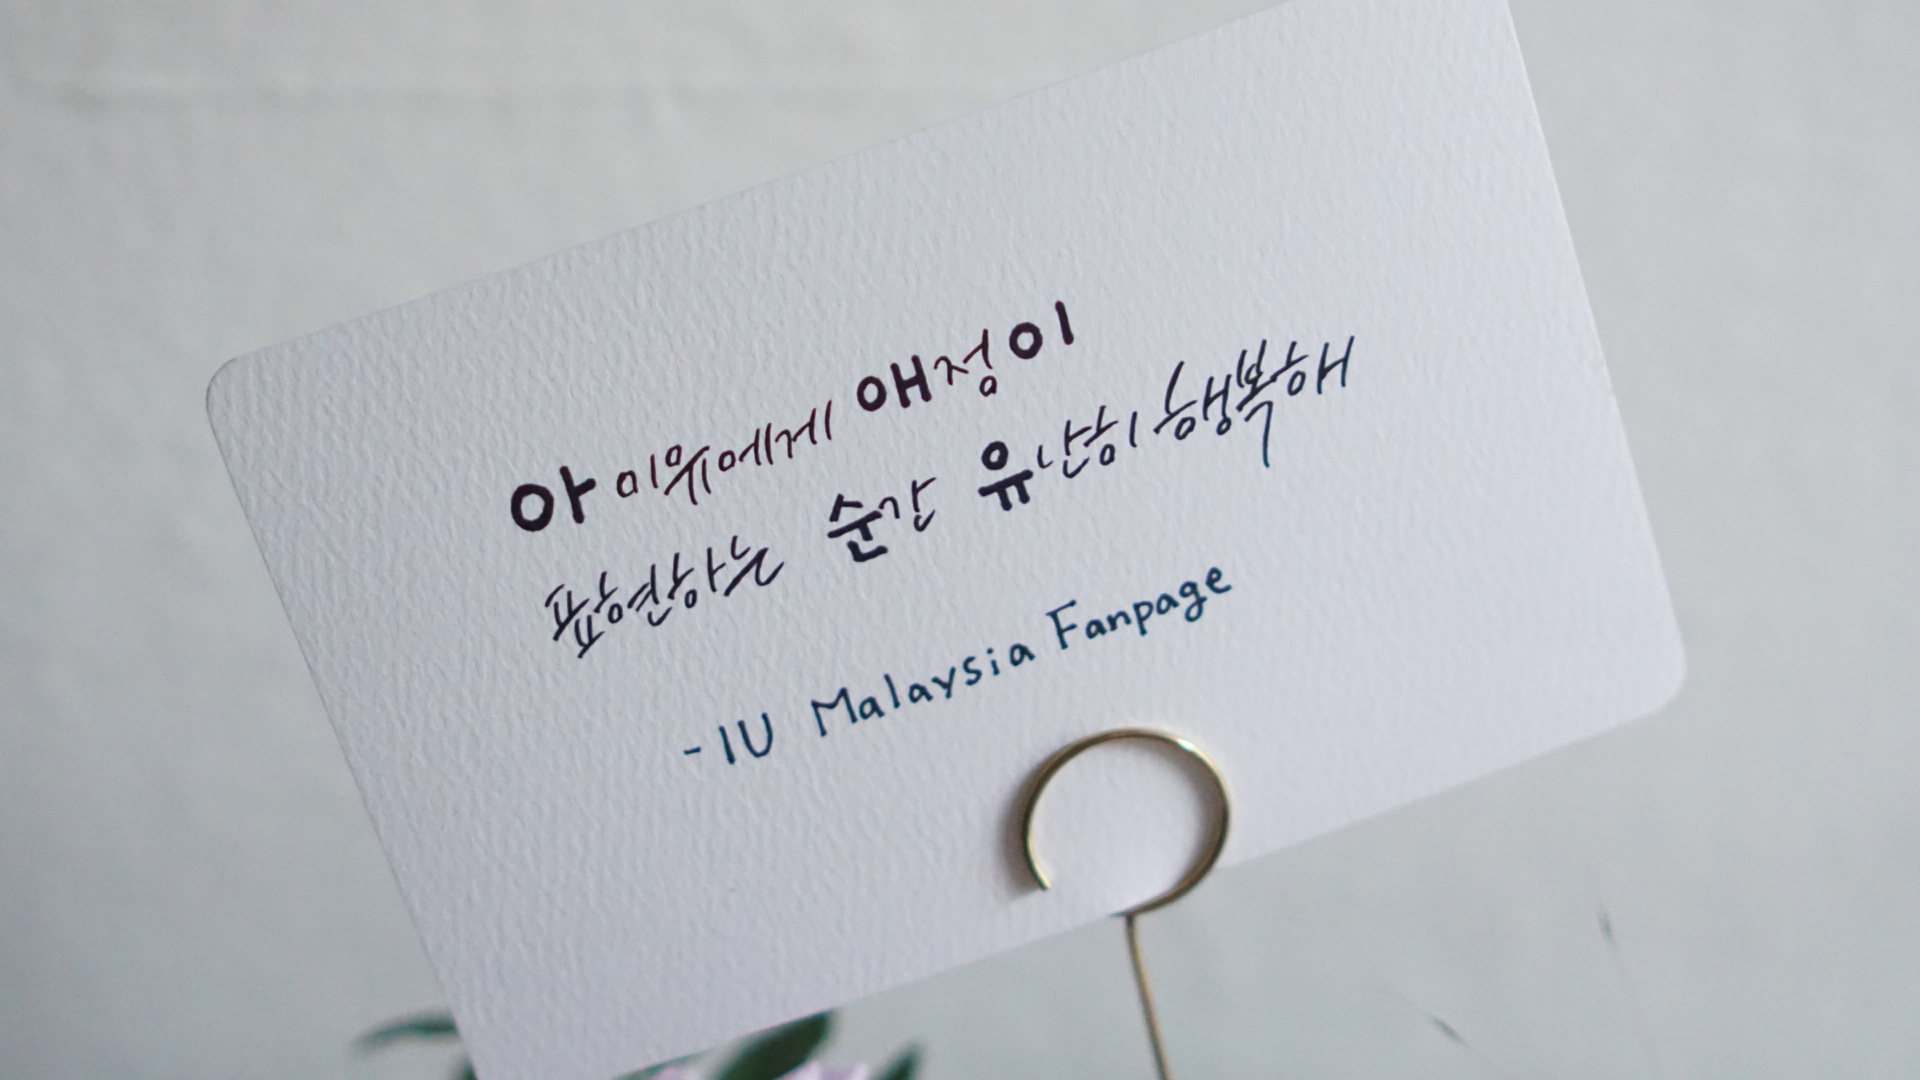 아이유에게 애정이
표현하는 순간 유난히 행복해
-IU Malaysia Fanpage